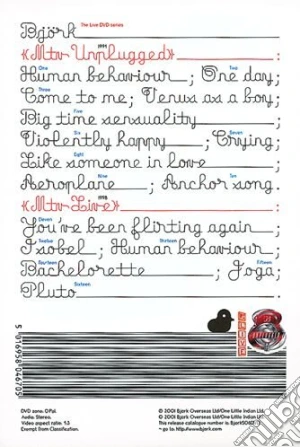 Björk The Live DVD series
1994
«Mtv Unplugged» :
One Two
Human behaviour ; One day;
Three Four
Come to me; Venus as a boy;
Five
Big time sensuality ;
Six Seven
Violently happy ; Crying;
Eight
Like someone in love ;
Nine Ten
Aeroplane ; Anchor song.
1998
«Mtv Live» :
Eleven
You've been flirting again ;
Twelve Thirteen
Isobel; Human behaviour;
Fourteen Fifteen
Bachelorette ; Joga;
Sixteen
Pluto .
5 016958 046705
DVD zone. 0 Pal.
Audio. Stereo.
Video aspect ratio. 1.3
Exempt from Classification.
℗ 2001 Bjork Overseas Ltd/One Little Indian Ltd.
© 2001 Bjork Overseas Ltd/One Little Indian Ltd.
This release catalogue number is
> go to: http://www.bjork.com